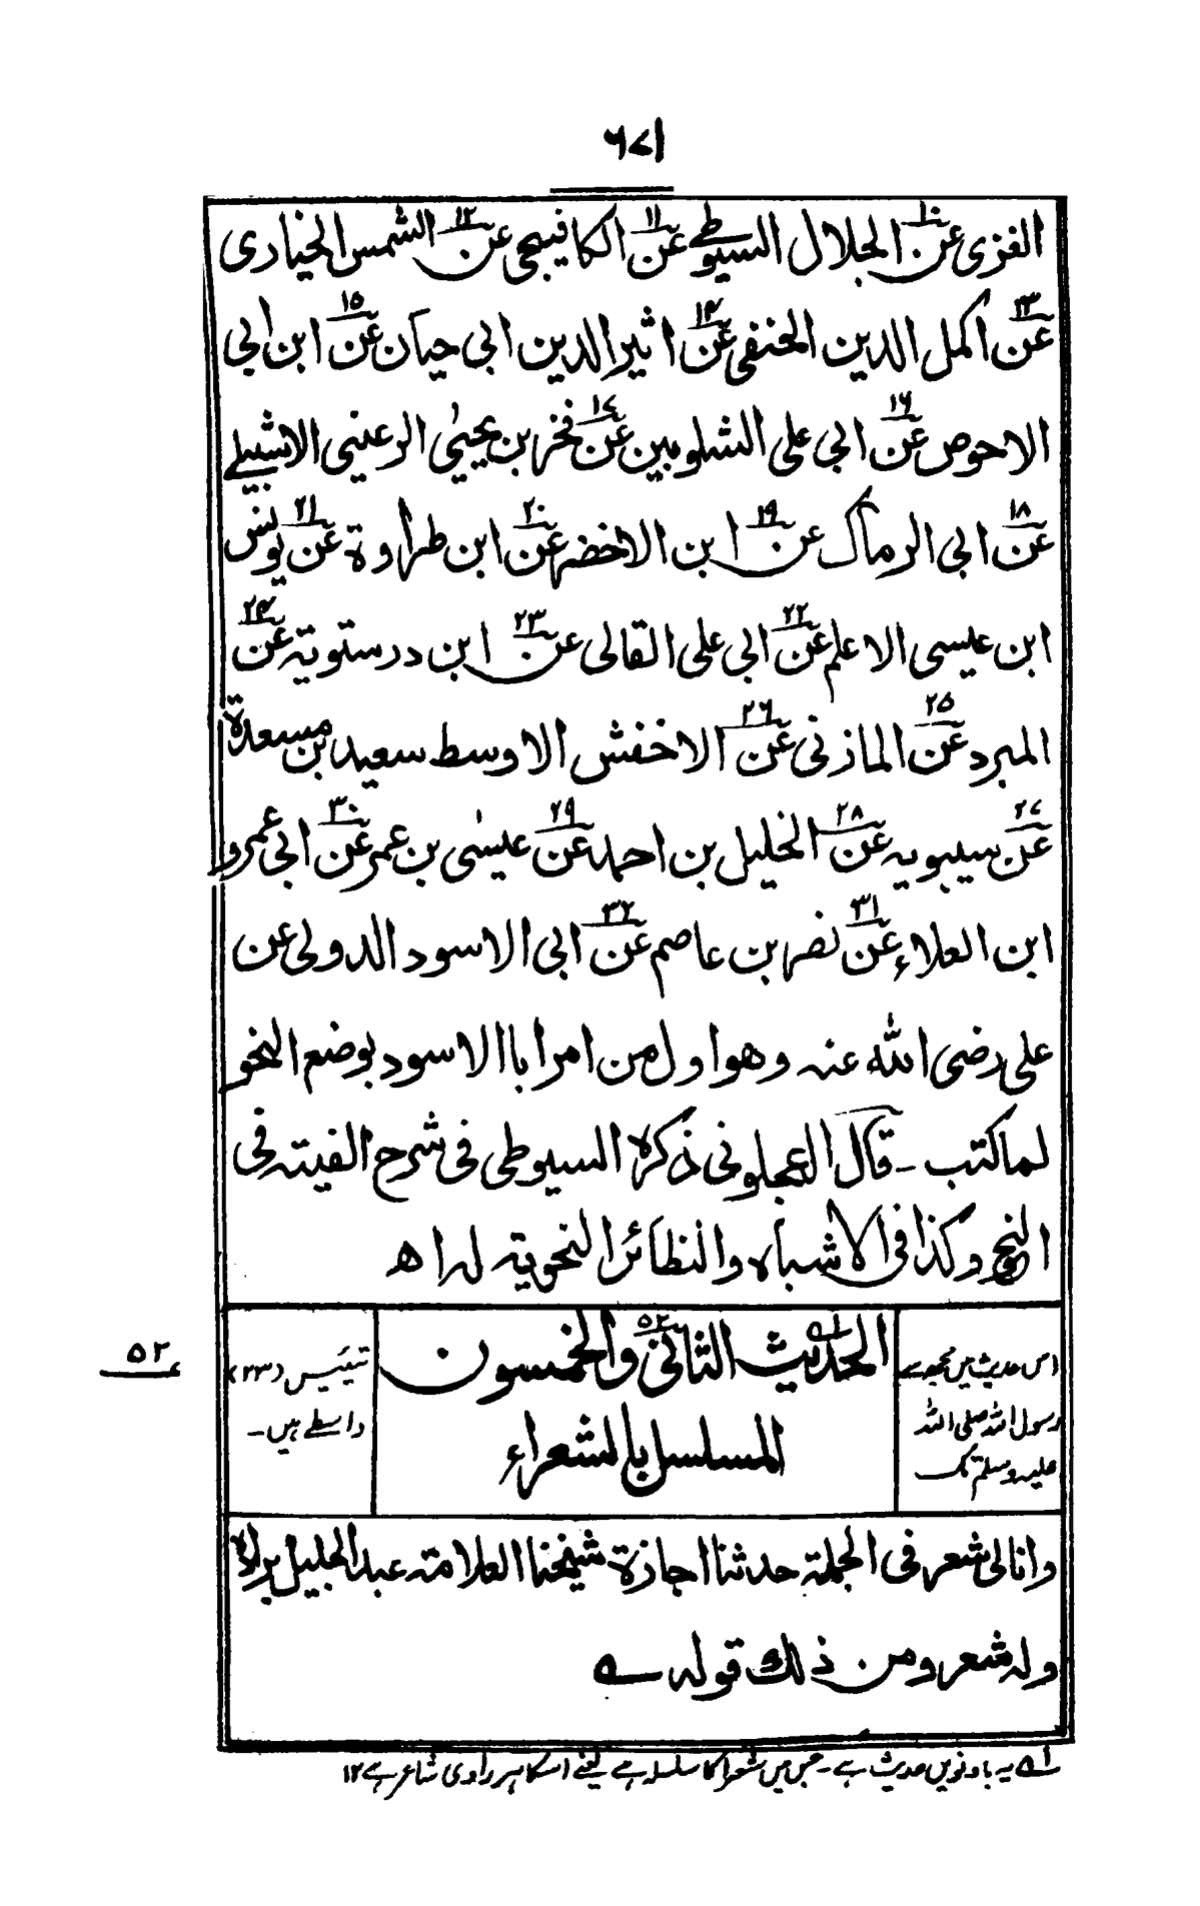 ۶۷۱
الغزی عن۱۰ الجلال السیوطی عن۱۱ الکافیجی عن۱۲ الشمس الخیاری
عن۱۳ اکمل الدین الحنفی عن۱۴ اثیر الدین ابی حیان عن۱۵ ابن ابی
الاحوص عن۱۶ ابی علی الشلوبین عن۱۷ فخر بن یحییٰ الرعینی الاشبیلے
عن۱۸ ابی الرماک عن۱۹ ابن الاخضر عن۲۰ ابن طراوة عن۲۱ یونس
ابن عیسی الاعلم عن۲۲ ابی علی القالی عن۲۳ ابن درستویة عن۲۴
المبرد عن۲۵ المازنی عن۲۶ الاخفش الاوسط سعید بن مسعدة
عن۲۷ سیبویه عن۲۸ الخلیل بن احمد عن۲۹ عیسٰی بن عمر عن۳۰ ابی عمرو
ابن العلاء عن۳۱ نصر بن عاصم عن۳۲ ابی الاسود الدولی عن
علی رضی اللّٰه عنه وهو اول من امر ابا الاسود بوضع النحو
لما کتب ـ قال العجلونی ذکره السیوطی فی شرح الفیته فی
النحو وکذا فی الاشباه والنظائر النحویة له اه
اس حدیث میں مجھ سے
رسول اللہ صلی اللہ
علیہ وسلم تک
الحدیث۱ الثانی۵۲ والخمسون
المسلسل بالشعراء
تیئیس (۲۳)
واسطے ہیں۔
۵۲
وانا لی شعر فی الجملة حدثنا اجازة شیخنا العلامة عبد الجلیل برادہ
وله شعر ومن ذلک قوله ؎
۱؎ یہ باونویں حدیث ہے۔ جس میں شعرا کا سلسلہ ہے یعنے اسکا ہر راوی شاعر ہے ۱۲